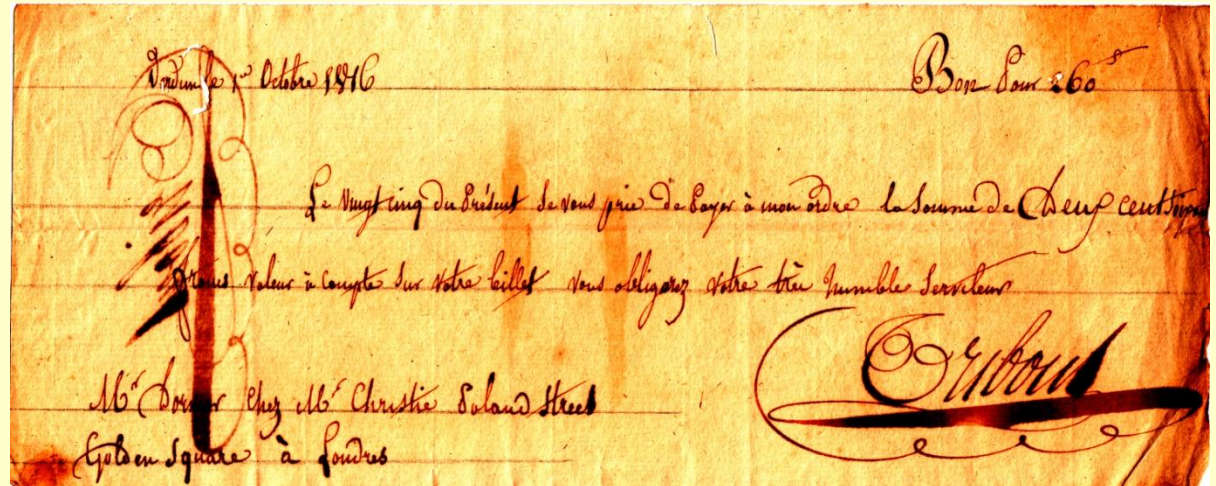 1er Octobre 1816
Bon Pour 260 f
Le vingt cinq du Présent Je vous prie de Payer à mon ordre la Somme de Deux cent
francs valeur à compte sur votre billet vous obligerez votre très humble Serviteur
Tribout
Mr chez Mr Christie Poland Street
Golden Square à Londres